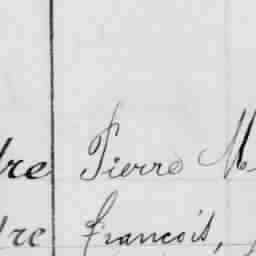 dre Pierre M
dre francois,